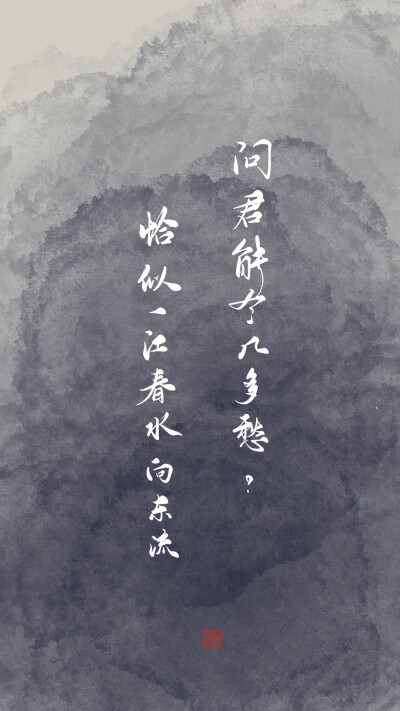 问君能有几多愁？
恰似一江春水向东流